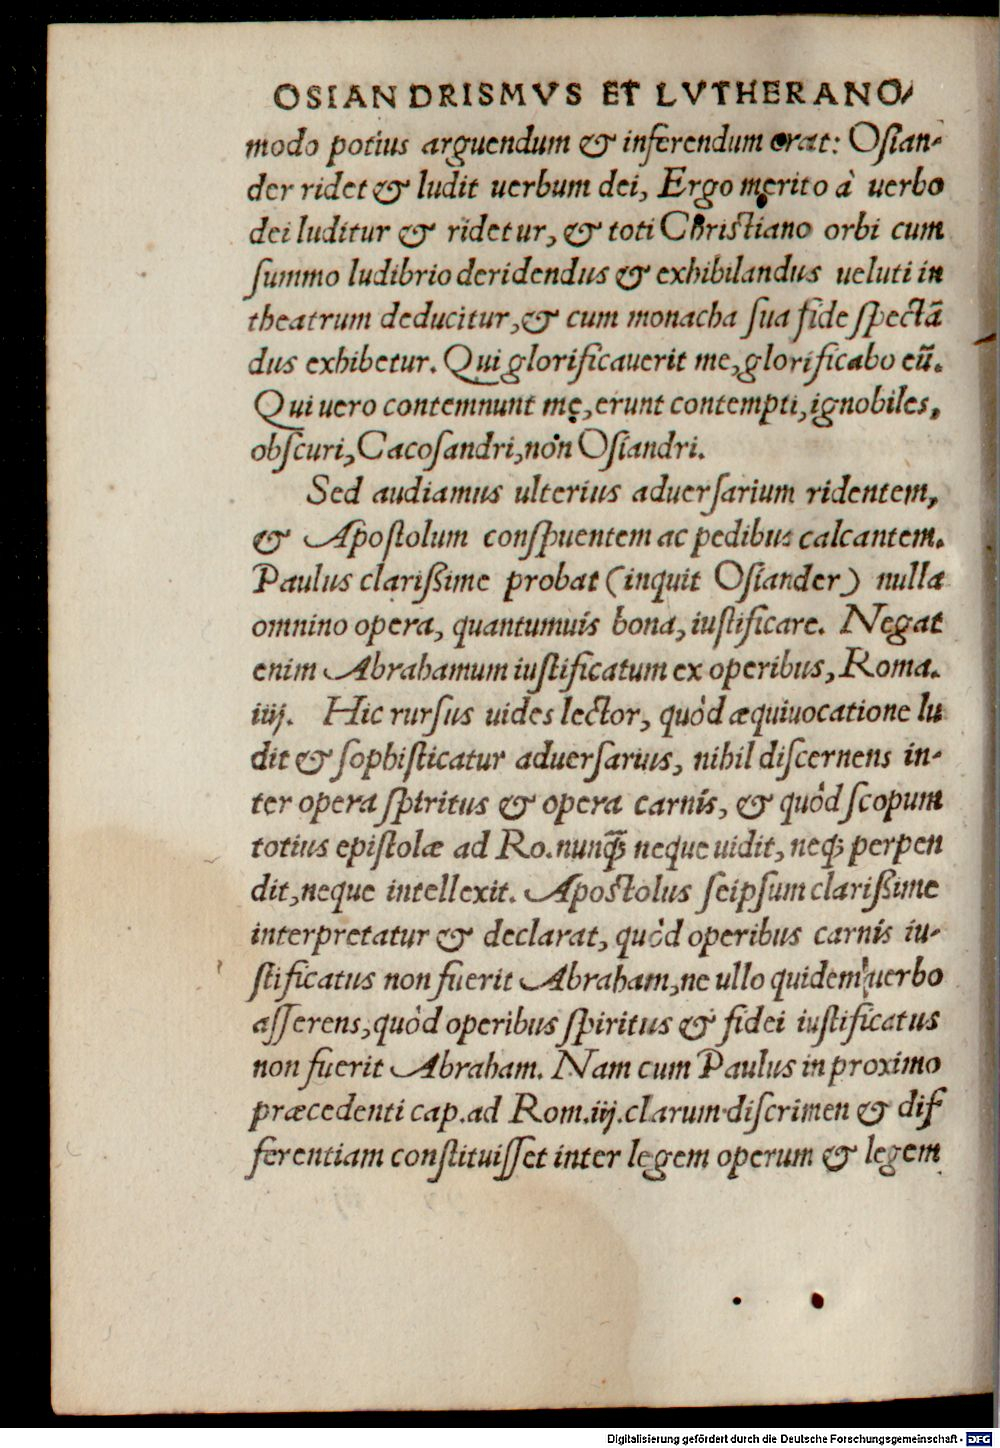 OSIANDRISMVS ET LVTHERANO/
modo potius arguendum & inferendum erat: Osian-
der ridet & ludit uerbum dei, Ergo merito à uerbo
dei luditur & ridetur, & toti Christiano orbi cum
summo ludibrio deridendus & exhibilandus ueluti in
theatrum deducitur, & cum monacha sua fide spectā
dus exhibetur. Qui glorificauerit me, glorificabo eū.
Qui uero contemnunt me, erunt contempti, ignobiles,
obscuri, Cacosandri, non Osiandri.
Sed audiamus ulterius aduersarium ridentem,
& Apostolum conspuentem ac pedibus calcantem.
Paulus clarißime probat (inquit Osiander) nulla
omnino opera, quantumuis bona, iustificare. Negat
enim Abrahamum iustificatum ex operibus, Roma.
iiij. Hic rursus uides lector, quòd æquiuocatione lu
dit & sophisticatur aduersarius, nihil discernens in-
ter opera spiritus & opera carnis, & quòd scopum
totius epistolæ ad Ro. nunq̃ꝫ neque uidit, neqꝫ perpen
dit, neque intellexit. Apostolus seipsum clarißime
interpretatur & declarat, quòd operibus carnis iu-
stificatus non fuerit Abraham, ne ullo quidem uerbo
asserens, quòd operibus spiritus & fidei iustificatus
non fuerit Abraham. Nam cum Paulus in proximo
præcedenti cap. ad Rom. iij. clarum discrimen & dif
ferentiam constituisset inter legem operum & legem
Digitalisierung gefördert durch die Deutsche Forschungsgemeinschaft - DFG